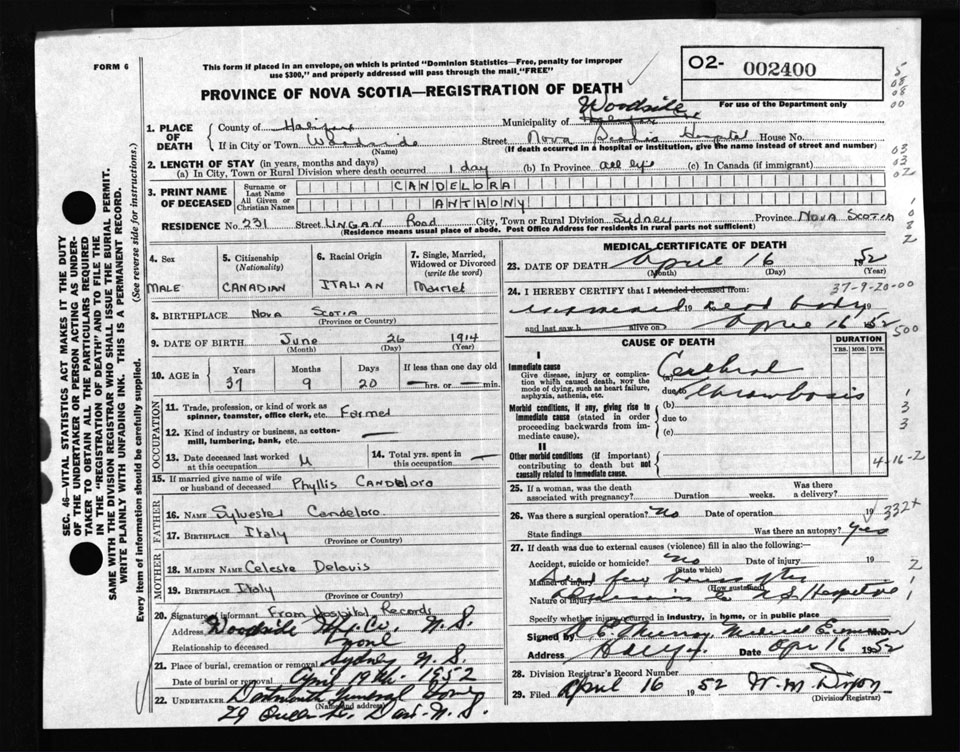 FORM 6
This form if placed in an envelope, on which is printed "Dominion Statistics—Free, penalty for improper
use $300," and properly addressed will pass through the mail "FREE"
O2- 002400
For use of the Department only
PROVINCE OF NOVA SCOTIA—REGISTRATION OF DEATH
Woodside
1. PLACE OF DEATH County of Halifax Municipality of Halifax
If in City or Town Woodside Street Nova Scotia Hospital House No.
(Name) (If death occurred in a hospital or institution, give the name instead of street and number)
2. LENGTH OF STAY (in years, months and days)
(a) In City, Town or Rural Division where death occurred 1 day (b) In Province all life (c) In Canada (if immigrant)
3. PRINT NAME OF DECEASED Surname or Last Name CANDELORA
All Given or Christian Names ANTHONY
RESIDENCE No. 231 Street LINGAN Road City, Town or Rural Division Sydney Province NOVA SCOTIA
(Residence means usual place of abode. Post Office Address for residents in rural parts not sufficient)
4. Sex MALE
5. Citizenship (Nationality) CANADIAN
6. Racial Origin ITALIAN
7. Single, Married, Widowed or Divorced (write the word) Married
8. BIRTHPLACE Nova Scotia
(Province or Country)
9. DATE OF BIRTH June 26 1914
(Month) (Day) (Year)
10. AGE in Years 37 Months 9 Days 20 If less than one day old — hrs. or — min.
OCCUPATION
11. Trade, profession, or kind of work as spinner, teamster, office clerk, etc.
12. Kind of industry or business, as cotton-mill, lumbering, bank, etc. —
13. Date deceased last worked at this occupation
14. Total yrs. spent in this occupation —
15. If married give name of wife or husband of deceased Phyllis Candelora
FATHER
16. NAME Sylvester Candelora
17. BIRTHPLACE Italy
(Province or Country)
MOTHER
18. MAIDEN NAME Celeste
19. BIRTHPLACE Italy
(Province or Country)
20. Signature of informant From Hospital Records
Address Woodside Hfx. Co. N.S.
Relationship to deceased None
21. Place of burial, cremation or removal Sydney N.S.
Date of burial or removal April 19th. 1952
22. UNDERTAKER Dartmouth Funeral Home
(Name and address)
29 Queen St. Dart. N.S.
MEDICAL CERTIFICATE OF DEATH
23. DATE OF DEATH April 16 1952
(Month) (Day) (Year)
37-9-20-00
24. I HEREBY CERTIFY that I attended deceased from:
dead body 19
and last saw h alive on April 16 1952
CAUSE OF DEATH DURATION
YRS. MOS. DYS.
I
Immediate cause
Give disease, injury or complication which caused death, NOT the mode of dying, such as heart failure, asphyxia, asthenia, etc.
(a) Cerebral
due to thrombosis
Morbid conditions, if any, giving rise to immediate cause (stated in order proceeding backwards from immediate cause).
(b)
due to
(c)
II
Other morbid conditions (if important) contributing to death but not causally related to immediate cause.
4-16-2
25. If a woman, was the death associated with pregnancy? Duration weeks. Was there a delivery?
26. Was there a surgical operation? No Date of operation 19
332x
State findings Was there an autopsy? Yes
27. If death was due to external causes (violence) fill in also the following:—
Accident, suicide or homicide? No Date of injury 19
(State which)
Manner of injury few hours after
(How sustained)
Nature of injury N.S. Hospital
Specify whether injury occurred in industry, in home, or in public place
Signed by Murray Medical Examiner M.D.
Address Halifax Date Apr 16 1952
28. Division Registrar's Record Number
29. Filed April 16 1952 W. M. Dixon
(Division Registrar)
SEC. 46—VITAL STATISTICS ACT MAKES IT THE DUTY
OF THE UNDERTAKER OR PERSON ACTING AS UNDER-
TAKER TO OBTAIN ALL THE PARTICULARS REQUIRED
IN THE "REGISTRATION OF DEATH" AND TO FILE THE
SAME WITH THE DIVISION REGISTRAR WHO SHALL ISSUE THE BURIAL PERMIT.
WRITE PLAINLY WITH UNFADING INK. THIS IS A PERMANENT RECORD.
Every item of information should be carefully supplied. (See reverse side for instructions.)